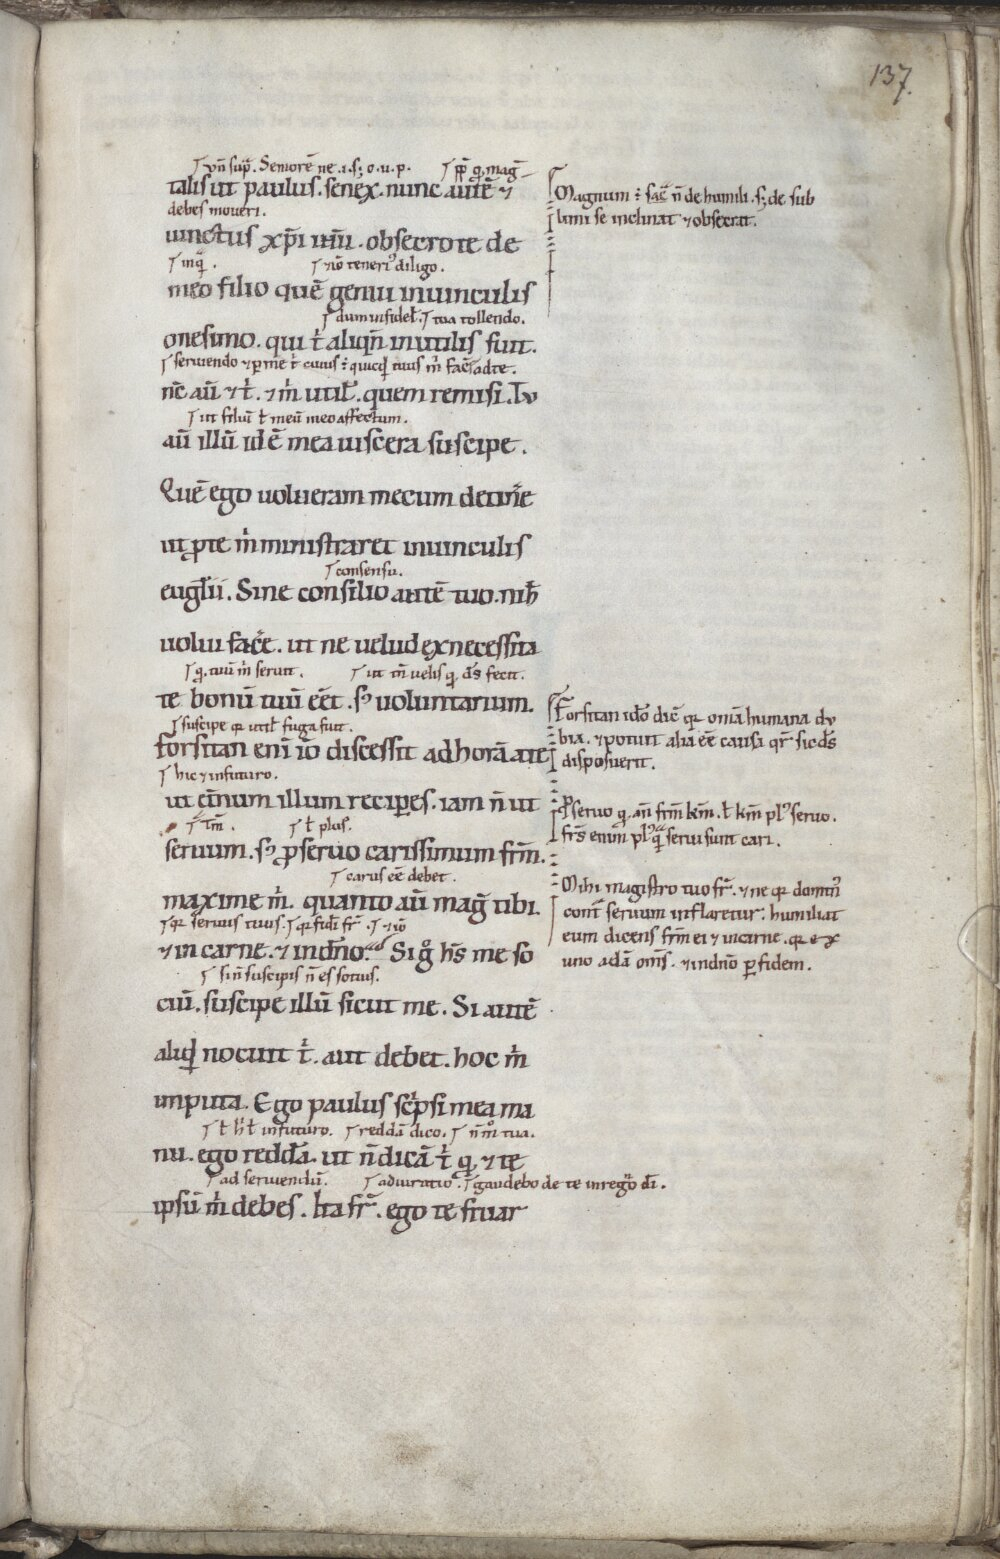 137.
vn̄ sup̄. Seniorē ne .i. s; o. u. p. pp̄ q̨ mag̅
talis ut paulus. senex. nunc autē ⁊
debes moveri.
uinctus xp̄i ihū. obsecro te de
inq̄. ⁊iō teneri᾽ diligo.
meo filio quē genui inuinculis
dum infidel̄. tua tollendo.
onesimo. qui t̄ aliqn̄ inutilis fuit.
seruiendo ⁊ per me t̄ cuius quicq̄ tuus m̄ facit ad te.
nc̄ aū ⁊ t̄. ⁊ m̄ util̄. quem remisi. Tu
ut filiū t̄ meū meo affectum.
aū illū id ē mea uiscera suscipe.
Quē ego uolueram mecum detin̄e
ut p̄te m̄ ministraret inuinculis
consensu.
eug̅lii. Sine consilio autē tuo. nih̄
uolui fac̄e. ut ne uelud ex necessita
q̨. tuū m̄ seruit. ut tm̄ uelis q̨ ds̄ fecit.
te bonū tuū eēt. s; uoluntarium.
suscipe qr util̄ fuga fuit.
forsitan eni īo discessit ad horā a te
hic ⁊ infuturo.
ut et̄num illum recipes. iam n̄ ut
tm̄. t̄ plus.
seruum. s; p̄ seruo carissimum frm̄.
carus eē debet.
maxime m̄. quanto aū mag̅ tibi.
qr seruus tuus. qr fidel̄ fr̄. ⁊iō
⁊ in carne. ⁊ in dn̄o. Si g° hs̄ me so
si n̄ suscipis n̄ es sotius.
ciū. suscipe illū sicut me. Si autē
aliq̄d nocuit t̄. aut debet. hoc m̄
imputa. Ego paulus sc̄psi mea ma
t̄ h̄ t̄ infuturo. reddā dico. n̄ m° tua.
nu. ego reddā. ut n̄ dicā t̄ q̨ ⁊ te
ad seruiendū. adiuratio. gaudebo de te in regō dī.
ipsū m̄ debes. Ita fr̄. ego te fruar
Magnum ÷ sac̄ n̄ de humili. s; de sub
limi se inclinat ⁊ obsecrat.
Forsitan id̄o dic̄ qr omīa humana du
bia. ⁊ potuit alia eē causa qr̄ sic ds̄
disposuerit.
P̄ seruo q̨. aū frm̄ km̄. t̄ km̄ pl᾽ seruo.
frs̄ enim pl᾽ q̄ serui sunt cari.
Mihi magistro tuo fr̄. ⁊ ne qr domin᾽
cont̄ seruum inflaretur. humiliat
eum dicens frm̄ ei ⁊ incarne. qr ex
uno adā om̄s. ⁊ in dn̄o per fidem.